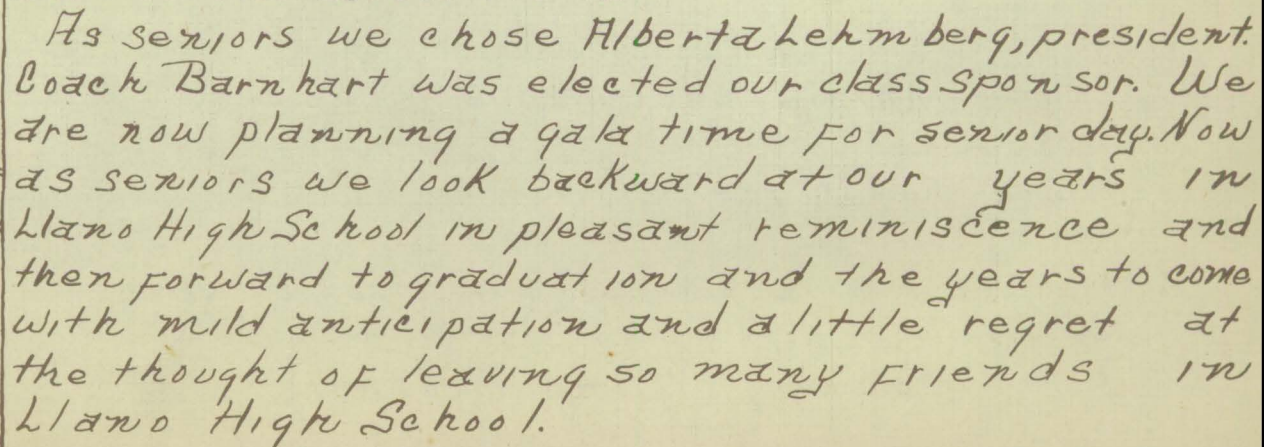 As seniors we chose Alberta Lehmberg, president.
Coach Barnhart was elected our class sponsor. We
are now planning a gala time for senior day. Now
as seniors we look backward at our years in
Llano High School in pleasant reminiscence and
then forward to graduation and the years to come
with mild anticipation and a little regret at
the thought of leaving so many friends in
Llano High School.